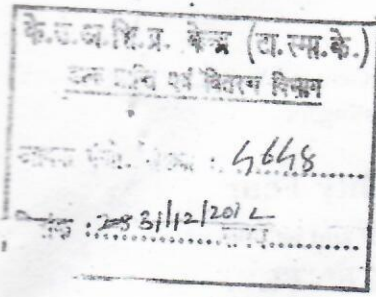 के.उ.अ.शि.प्र. केन्द्र (टा.स्मा.के.)
डाक प्राप्ति एवं वितरण विभाग
: 4648
: 31/12/2012